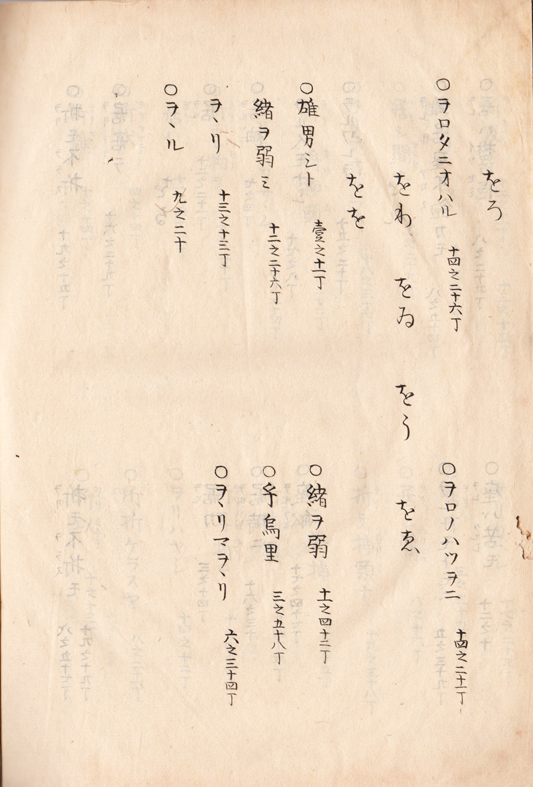 をろ
○ヲロタニオハル 十四之二十六丁
○ヲロノハツヲニ 十四之二十一丁
をわ をゐ をう をゑ
をを
○雄男シト 壹之十一丁
○緒ヲ弱 十一之四十二丁
緒ヲ弱ミ 十二之二十六丁
○乎烏里 三之五十八丁
ヲヽリ 十三之十三丁
○ヲヽリマヲヽリ 六之三十四丁
○ヲヽル 九之二十